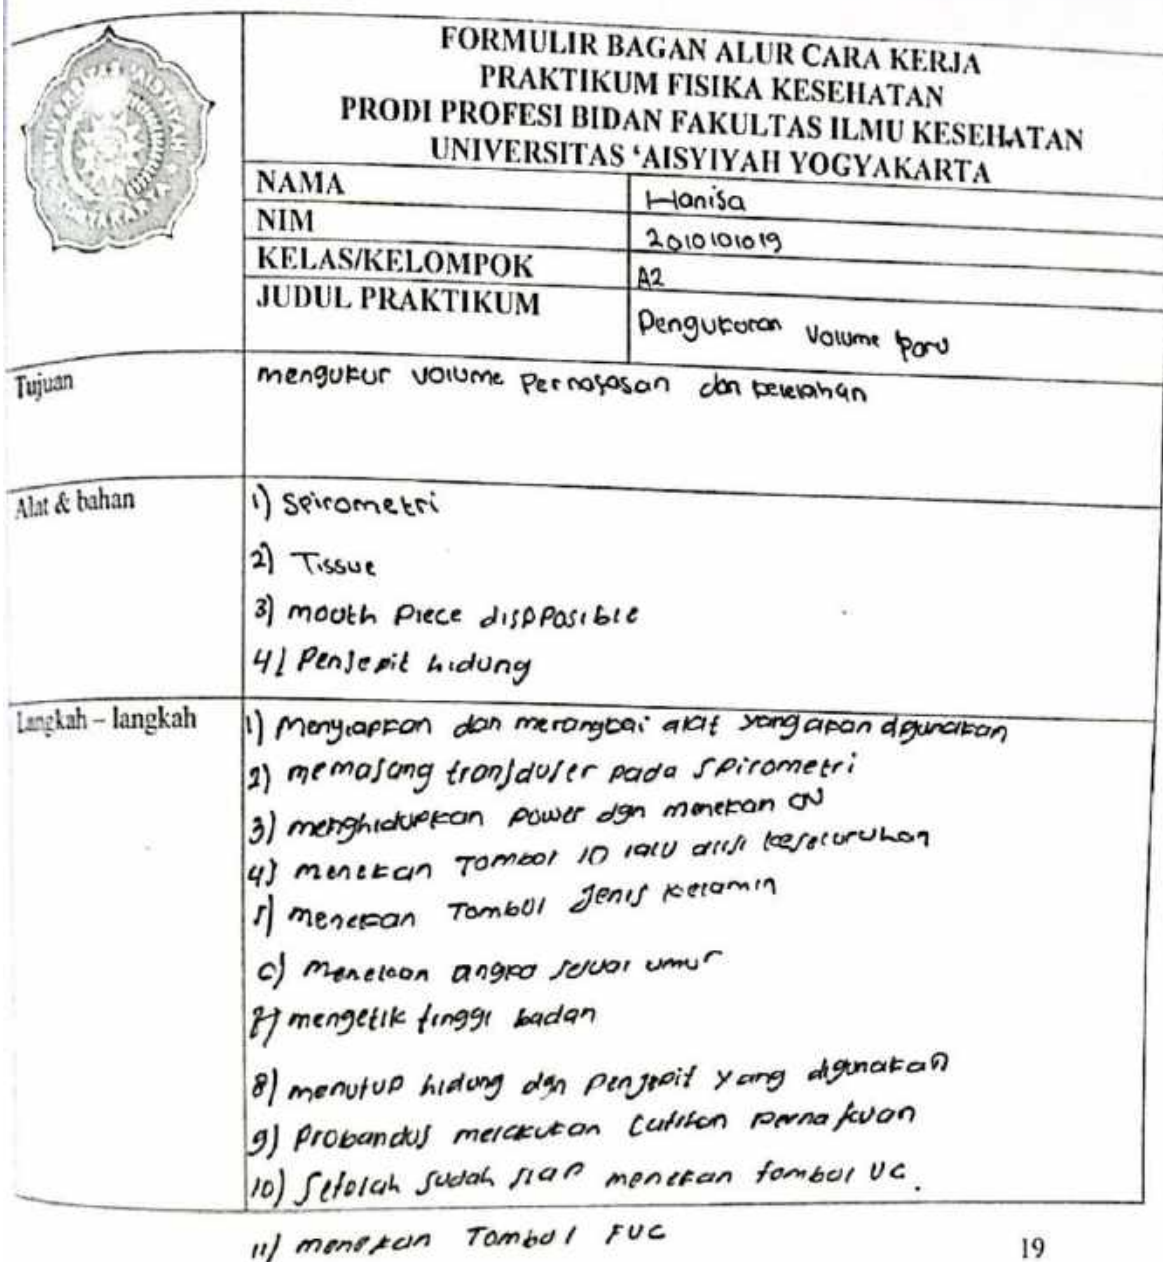 FORMULIR BAGAN ALUR CARA KERJA
PRAKTIKUM FISIKA KESEHATAN
PRODI PROFESI BIDAN FAKULTAS ILMU KESEHATAN
UNIVERSITAS 'AISYIYAH YOGYAKARTA
NAMA Hanisa
NIM 2010101019
KELAS/KELOMPOK A2
JUDUL PRAKTIKUM Pengukuran Volume paru
Tujuan mengukur volume pernafasan dan kelelahan
Alat & bahan 1) Spirometri
2) Tissue
3) mouth piece dispposible
4) Penjepit hidung
Langkah – langkah 1) Menyiapkan dan merangkai alat yang akan dgunakan
2) memasang transduser pada spirometri
3) menghidupkan power dgn menekan ON
4) menekan Tombol ID lalu diisi keseluruhan
5) menekan Tombol Jenis kelamin
6) Menekan angka sesuai umur
7) mengetik tinggi badan
8) menutup hidung dgn penjepit yang digunakan
9) Probandus melakukan latihan pernafasan
10) Setelah sudah siap menekan tombol VC.
11) menekan Tombol FVC
19